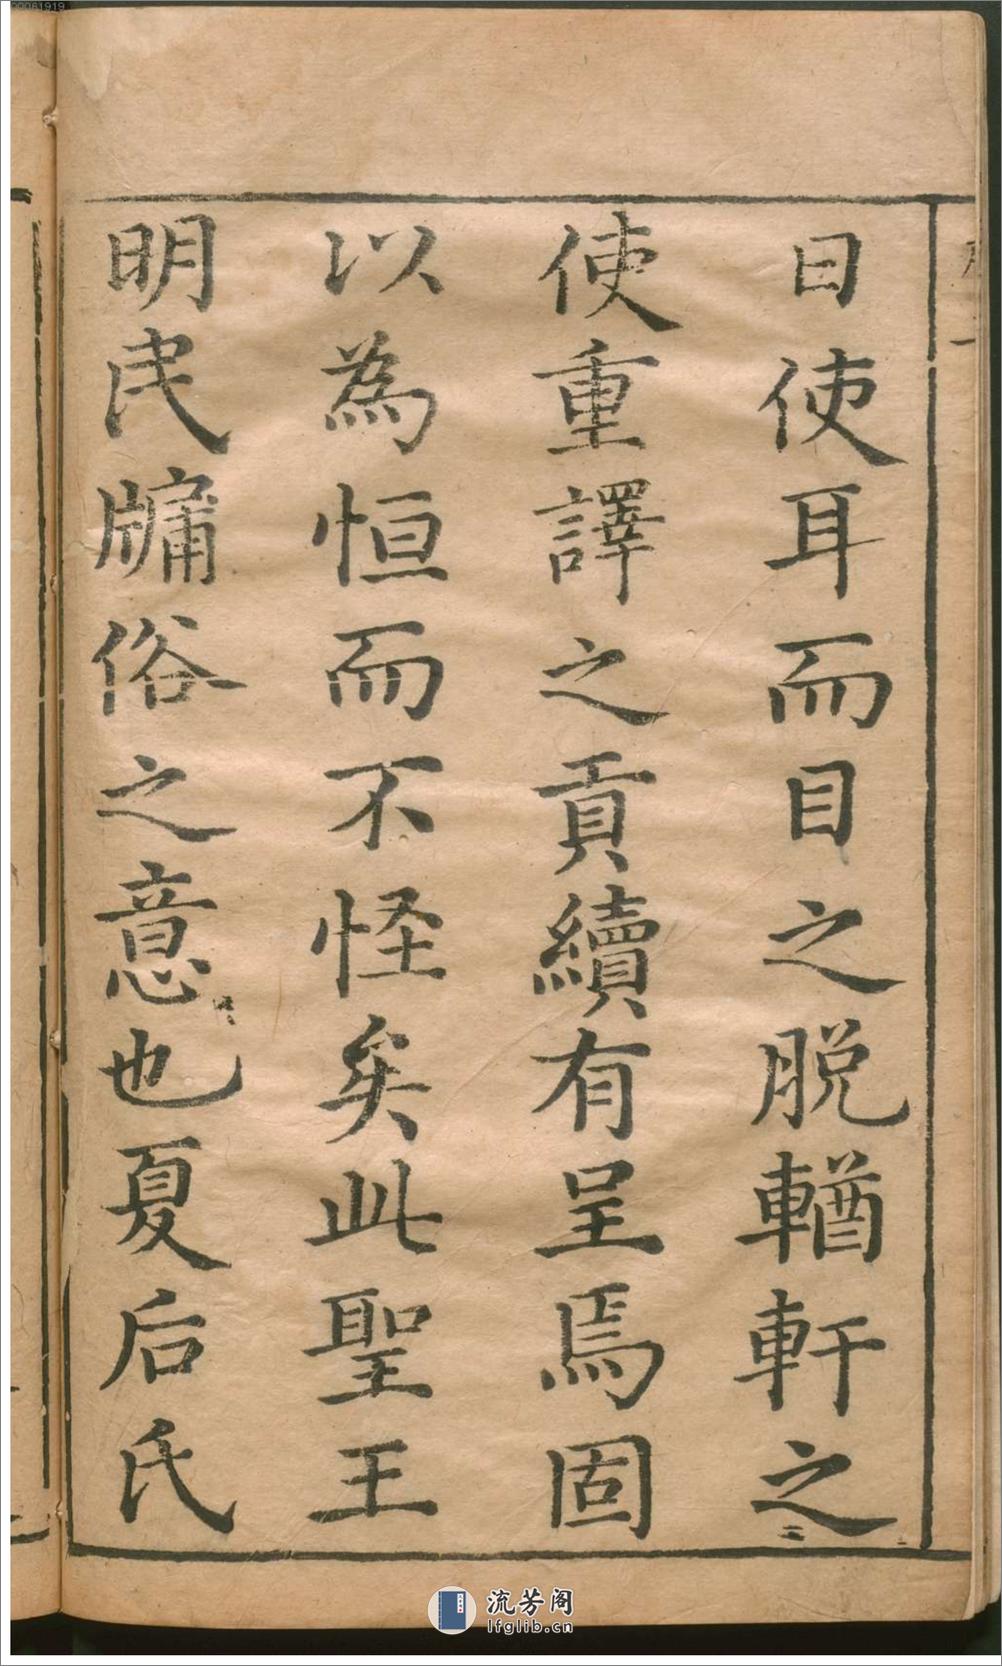 日使耳而目之脱輶軒之
使重譯之貢續有呈焉固
以為恒而不怪矣此聖王
明民牖俗之意也夏后氏
00061919
流芳阁
lfglib.cn